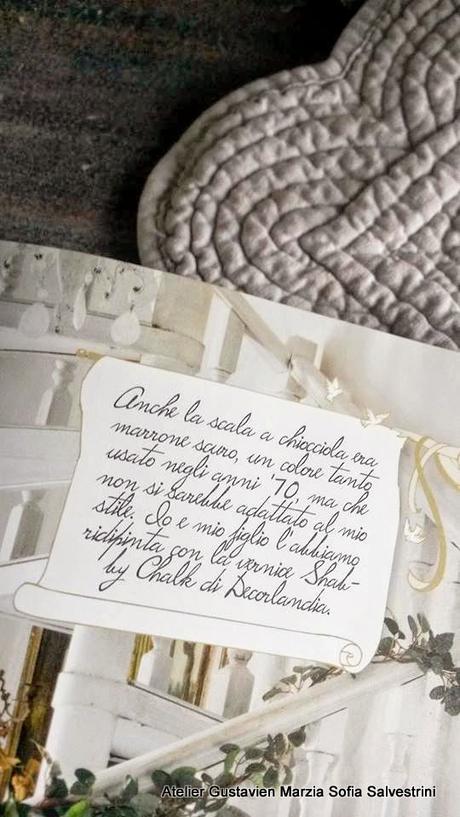 Anche la scala a chiocciola era
marrone scuro, un colore tanto
usato negli anni '70, ma che
non si sarebbe adattato al mio
stile. Io e mio figlio l'abbiamo
ridipinta con la vernice Shab-
by Chalk di Decorlandia.
Atelier Gustavien Marzia Sofia Salvestrini